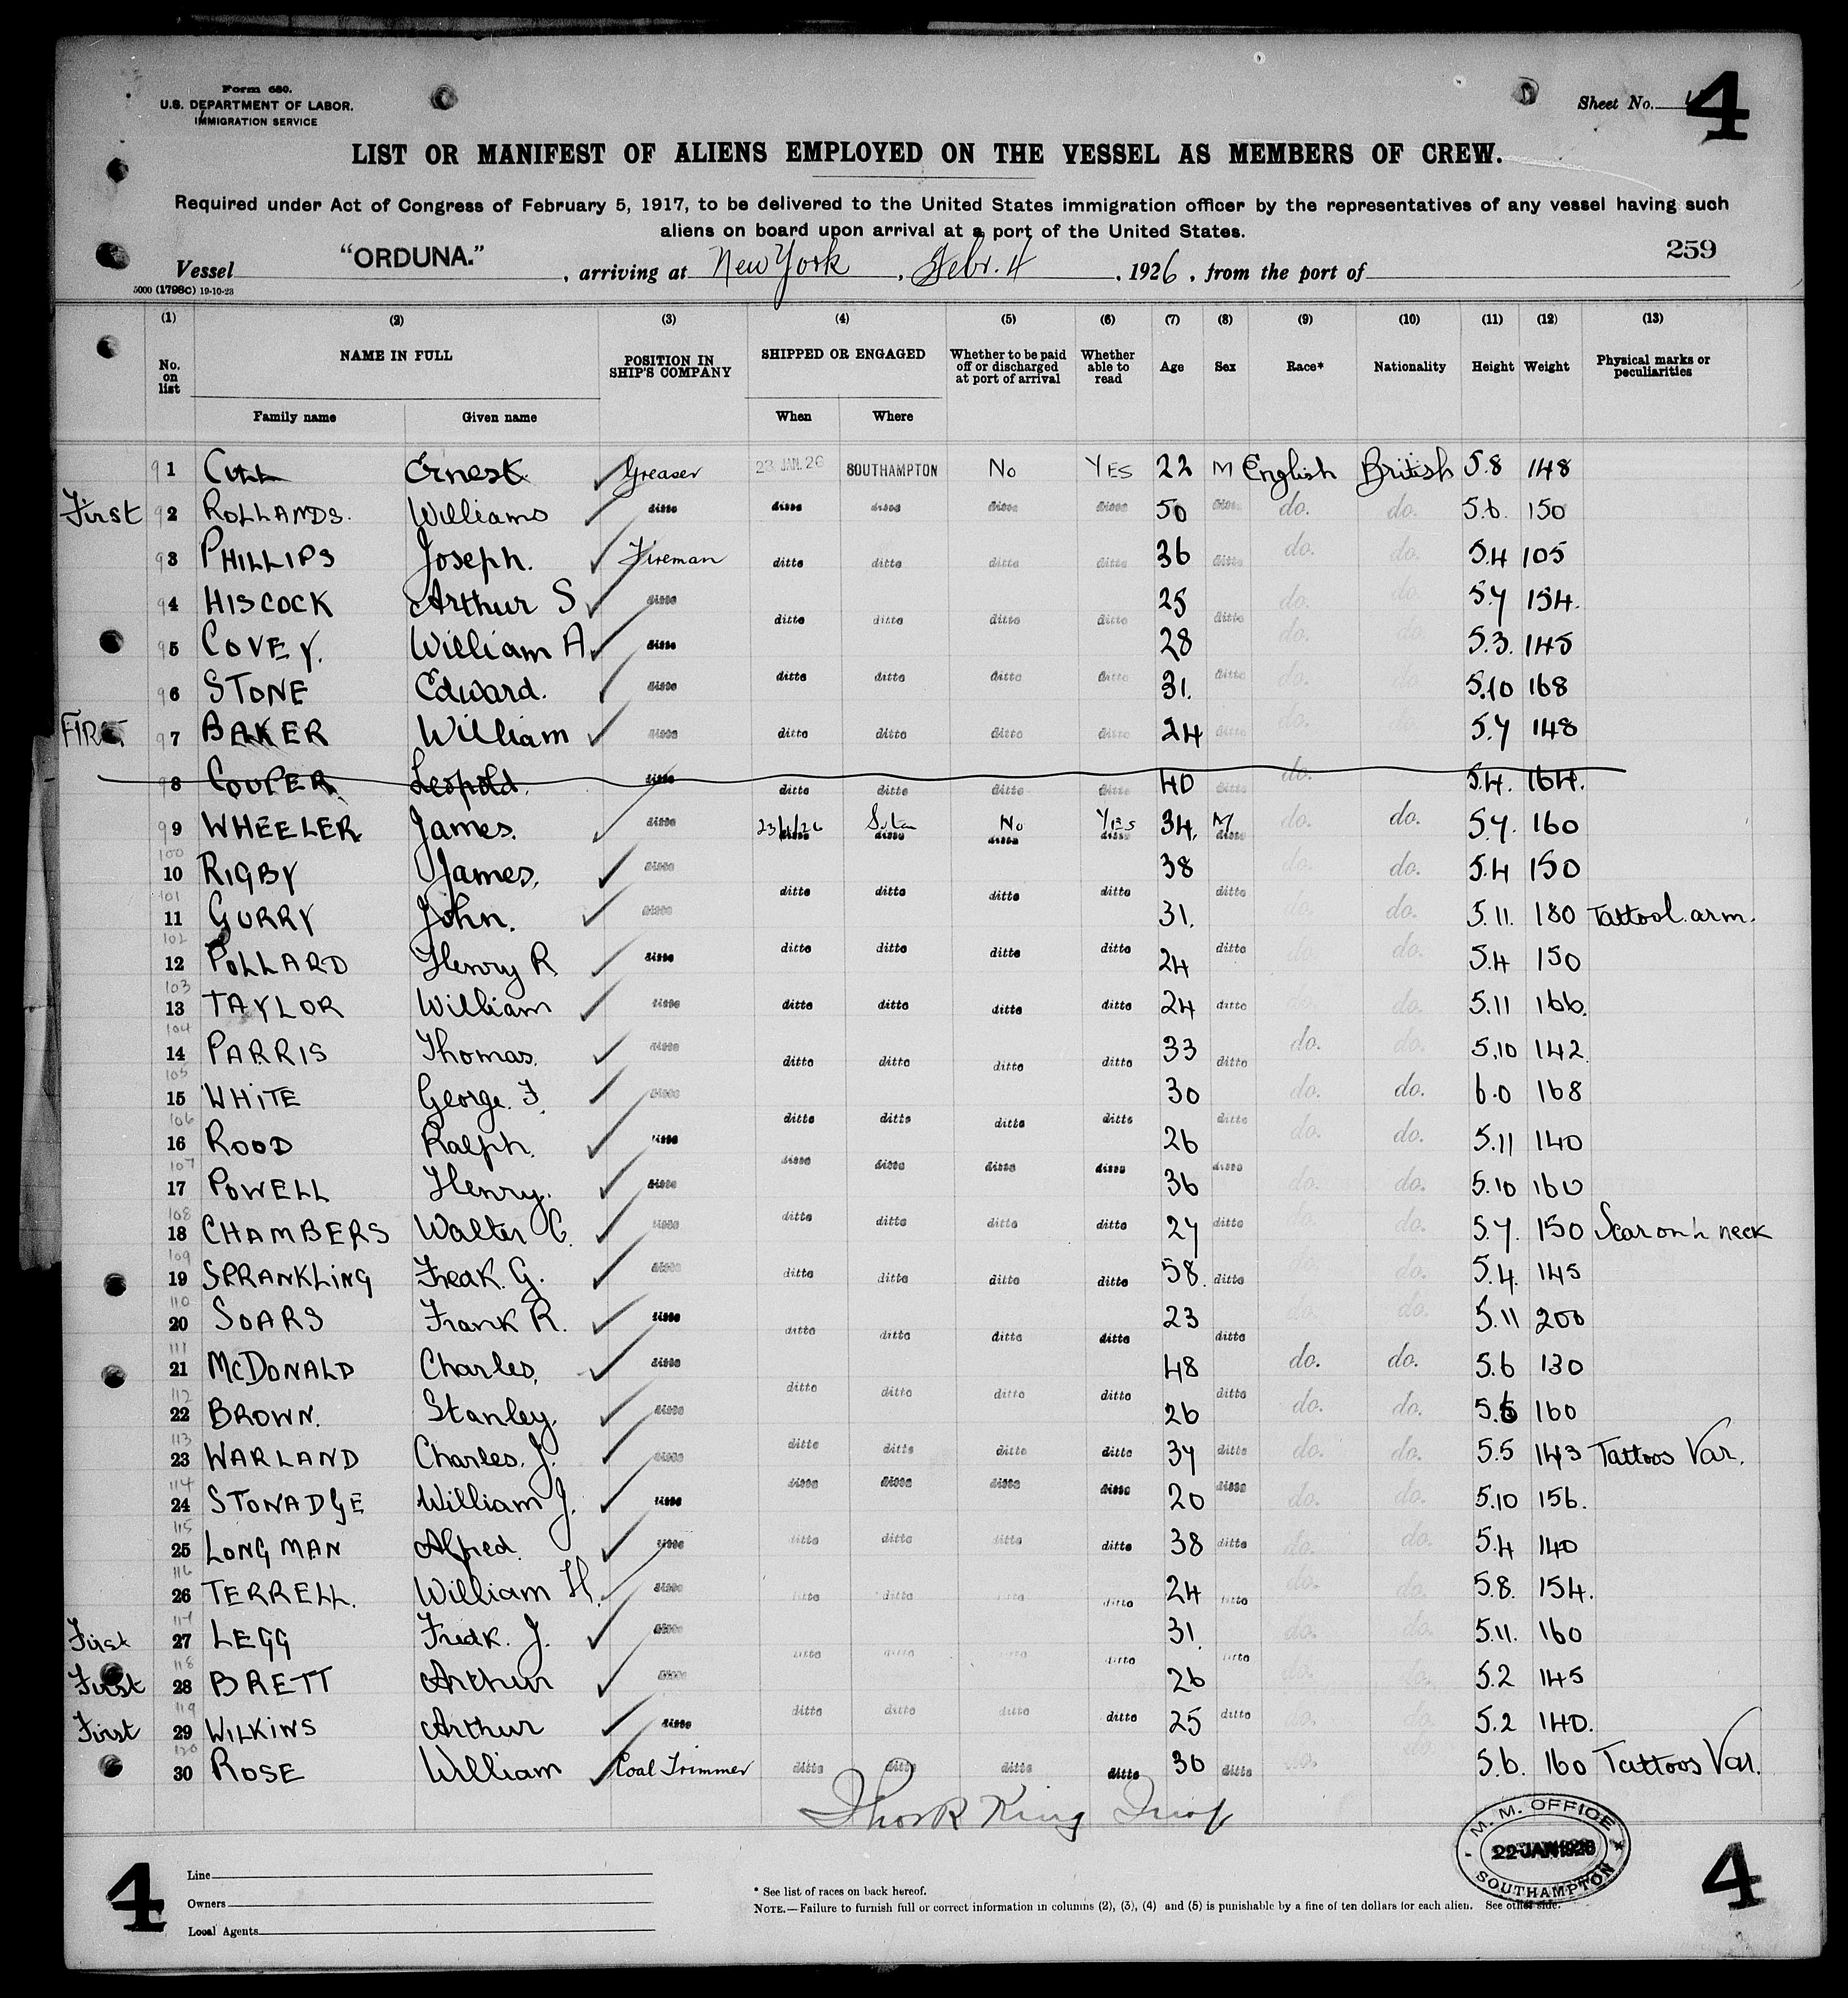 Form 680.
U.S. DEPARTMENT OF LABOR.
IMMIGRATION SERVICE
Sheet No. 4
LIST OR MANIFEST OF ALIENS EMPLOYED ON THE VESSEL AS MEMBERS OF CREW.
Required under Act of Congress of February 5, 1917, to be delivered to the United States immigration officer by the representatives of any vessel having such
aliens on board upon arrival at a port of the United States.
259
Vessel "ORDUNA." , arriving at New York , Febr. 4 , 1926 , from the port of
5000 (1798C) 19-10-23
(1) (2) (3) (4) (5) (6) (7) (8) (9) (10) (11) (12) (13)
No. on list NAME IN FULL POSITION IN SHIP'S COMPANY SHIPPED OR ENGAGED Whether to be paid off or discharged at port of arrival Whether able to read Age Sex Race* Nationality Height Weight Physical marks or peculiarities
Family name Given name When Where
91 1 CULL Ernest Greaser 23 JAN. 26 SOUTHAMPTON No YES 22 M English British 5.8 148
First 92 2 ROLLANDS. Williams ditto ditto ditto ditto ditto 50 ditto do. do. 5.6. 150
93 3 PHILLIPS Joseph. Fireman ditto ditto ditto ditto 36 ditto do. do. 5.4 105
94 4 HISCOCK Arthur S ditto ditto ditto ditto ditto 25 ditto do. do. 5.7 154.
95 5 COVEY. William A. ditto 28 do. do. 5.3. 145
96 6 STONE Edward. ditto ditto ditto ditto ditto 31. ditto do. do. 5.10 168
FIRST 97 7 BAKER William ditto ditto ditto ditto ditto 24 ditto do. do. 5.7 148
98 8 COUPER Leopold. ditto ditto ditto ditto ditto 40 ditto do. 5.4. 164.
99 9 WHEELER James. ditto 23/1/26 ditto ditto No ditto YES ditto 34. M ditto do. do. 5.7. 160
100 10 RIGBY James. ditto 38 do. do. 5.4 150
101 11 GURRY John. ditto ditto ditto ditto ditto 31. ditto do. do. 5.11. 180 Tattoo l. arm.
102 12 POLLARD Henry R ditto ditto ditto ditto ditto 24 ditto do. do. 5.4 150
103 13 TAYLOR William ditto ditto ditto ditto ditto 24 ditto do. do. 5.11 166.
104 14 PARRIS Thomas. ditto ditto ditto ditto ditto 33 ditto do. do. 5.10 142.
105 15 WHITE George. F. ditto 30 do. do. 6.0 168
106 16 ROOD Ralph. ditto ditto ditto ditto ditto 26 ditto do. do. 5.11 140
107 17 POWELL Henry. ditto ditto ditto ditto ditto 36 ditto do. do. 5.10 160
108 18 CHAMBERS Walter C. ditto ditto ditto ditto ditto 27 ditto do. do. 5.7. 150 Scar on h neck
109 19 SPRANKLING Fredk. G. ditto ditto ditto ditto ditto 58. ditto do. do. 5.4. 145
110 20 SOARS Frank R. ditto ditto ditto ditto ditto 23 ditto do. do. 5.11 200
111 21 McDONALD Charles. ditto 48 do. do. 5.6 130
112 22 BROWN. Stanley. ditto ditto ditto ditto ditto 26 ditto do. do. 5.6 160
113 23 WARLAND Charles. J. ditto ditto ditto ditto ditto 37 ditto do. do. 5.5 143 Tattoos Var.
114 24 STONADGE William J. ditto ditto ditto ditto ditto 20 ditto do. do. 5.10 156.
115 25 LONGMAN Alfred. ditto ditto ditto ditto ditto 38 ditto do. do. 5.4 140
116 26 TERRELL. William H. ditto ditto ditto ditto ditto 24 ditto do. do. 5.8. 154.
First 117 27 LEGG Fredk. J. ditto 31. do. do. 5.11. 160
First 118 28 BRETT Arthur ditto ditto ditto ditto ditto 26 ditto do. do. 5.2 145
First 119 29 WILKINS Arthur ditto ditto ditto ditto ditto 25 ditto do. do. 5.2 140.
120 30 ROSE William Coal Trimmer ditto ditto ditto ditto 30 ditto do. do. 5.6. 160 Tattoos Var.
Thos R King
M. M. OFFICE
22 JAN 1926
SOUTHAMPTON
4 4
Line
Owners
Local Agents
* See list of races on back hereof.
NOTE.—Failure to furnish full or correct information in columns (2), (3), (4) and (5) is punishable by a fine of ten dollars for each alien. See other side.